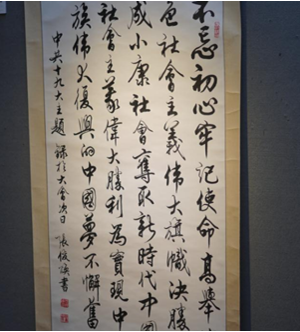 不忘初心牢記使命高舉
色社會主義偉大旗幟決勝
成小康社會奪取新時代中國
社會主義偉大勝利為實現中
族偉大復興的中國夢不懈奮
中共十九大主題 錄於大會次日 張俊書